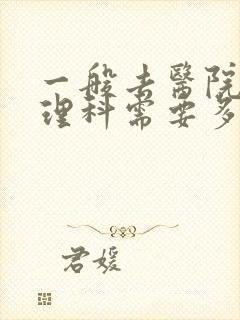 一般去醫院
理科需要多
君媛